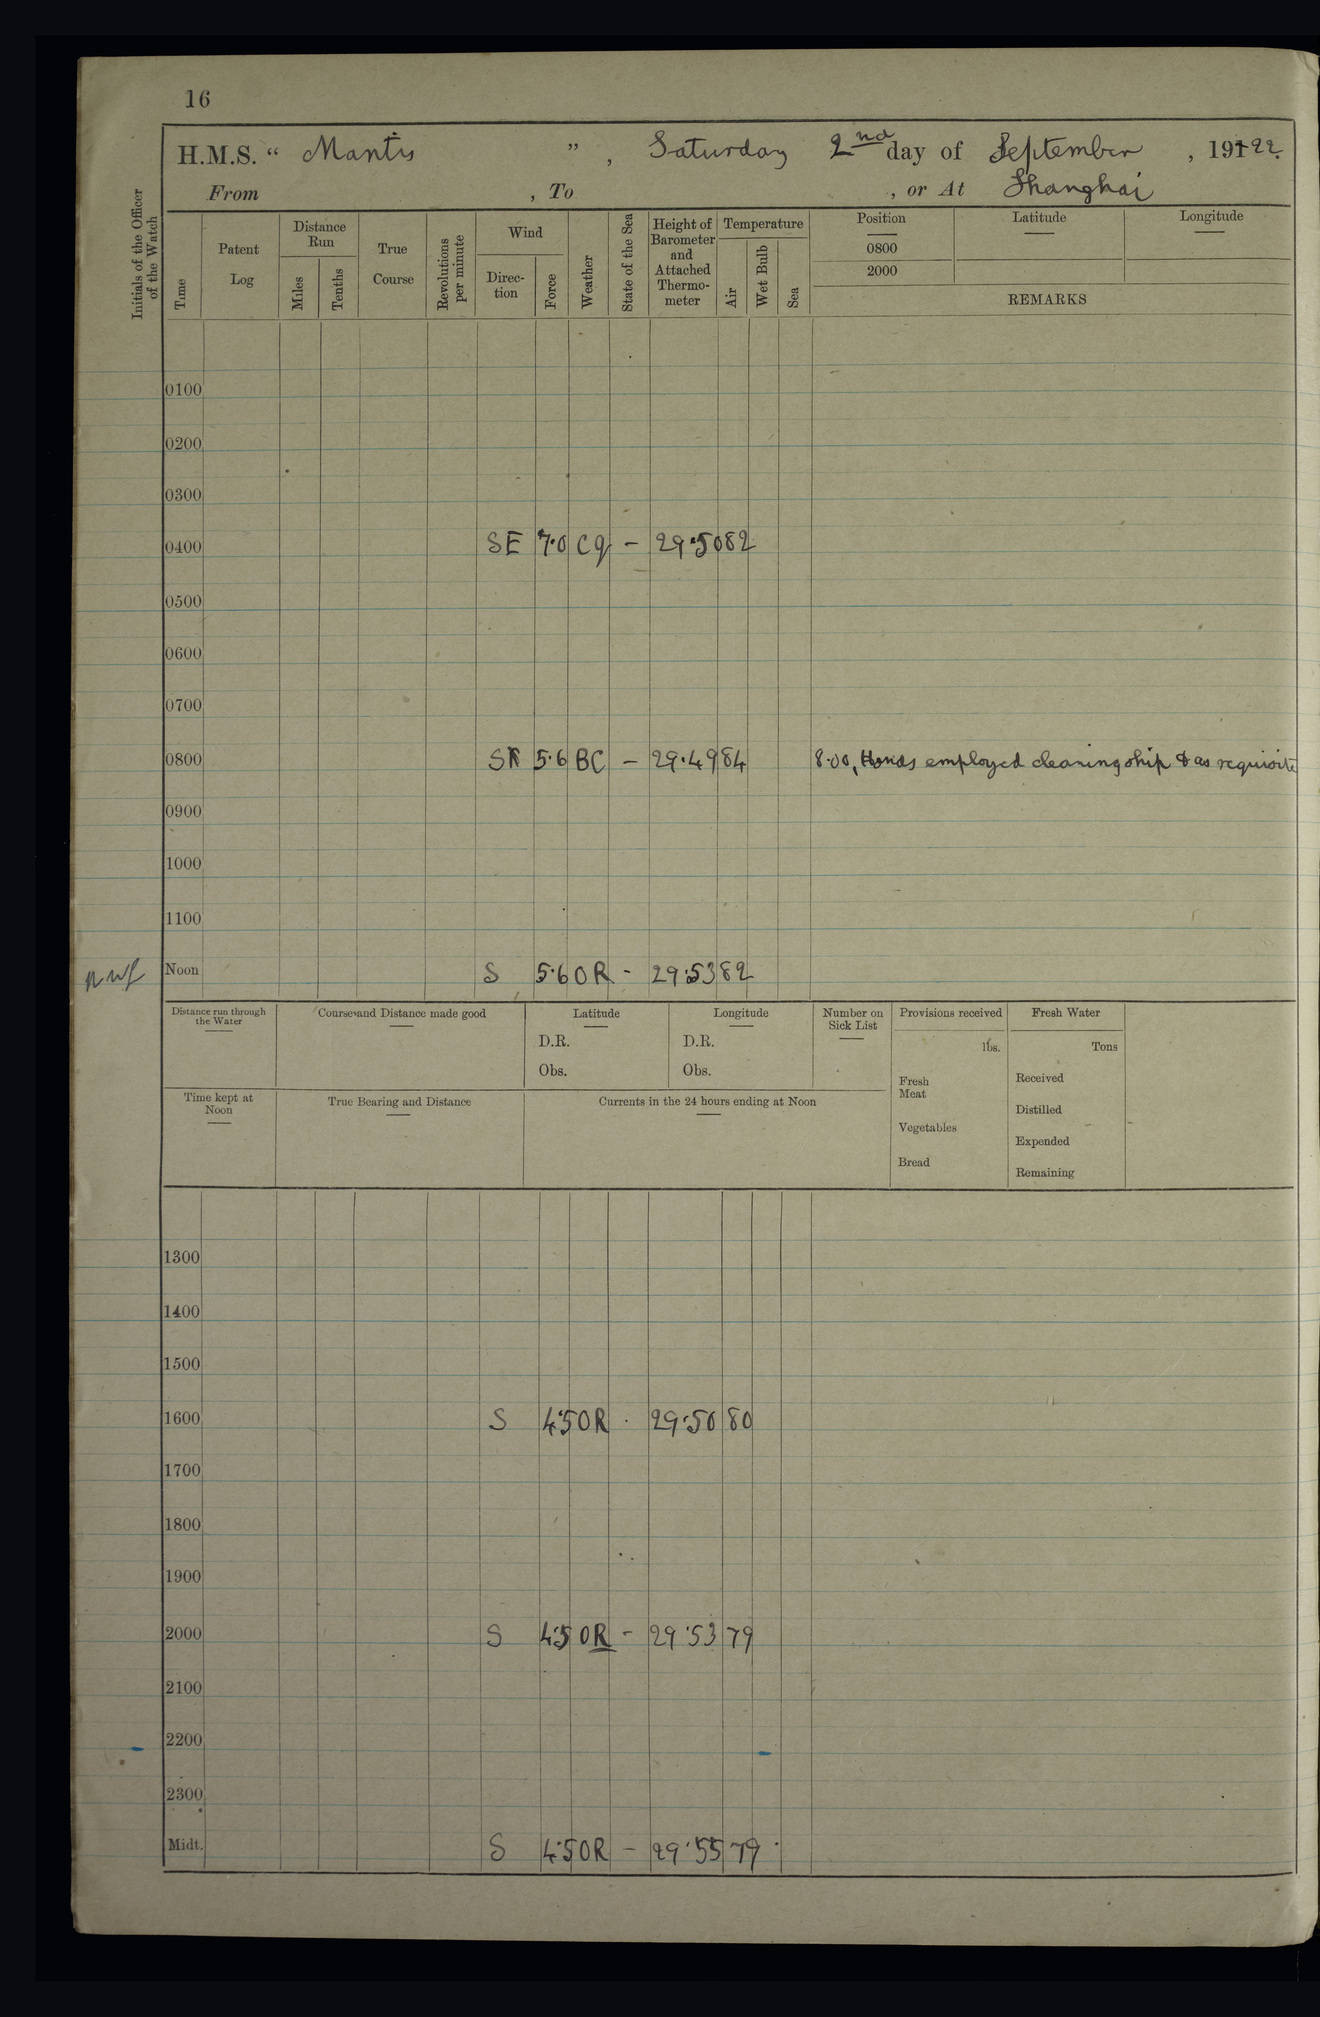 16
H.M.S. “ Mantis ” , Saturday 2nd day of September , 1922.
From , To , or At Shanghai
Initials of the Officer of the Watch
Time
Patent Log
Distance Run
Miles
Tenths
True Course
Revolutions per minute
Wind
Direc-tion
Force
Weather
State of the Sea
Height of Barometer and Attached Thermo-meter
Temperature
Air
Wet Bulb
Sea
Position
0800
2000
Latitude
Longitude
REMARKS
0100
0200
0300
0400 SE 7.0 Cq – 29.50 82
0500
0600
0700
0800 5.6 BC – 29.49 84 8.00, Hands employed cleaning ship & as requisite
0900
1000
1100
Noon S 5.6 OR - 29.53 82
Distance run through the Water
Courses and Distance made good
Latitude
D.R.
Obs.
Longitude
D.R.
Obs.
Number on Sick List
Provisions received
lbs.
Fresh Meat
Vegetables
Bread
Fresh Water
Tons
Received
Distilled
Expended
Remaining
Time kept at Noon
True Bearing and Distance
Currents in the 24 hours ending at Noon
1300
1400
1500
1600 S 4.5 OR · 29.50 80
1700
1800
1900
2000 S 4.5 OR – 29.53 79
2100
2200
2300
Midt. S 4.5 OR – 29.55 79